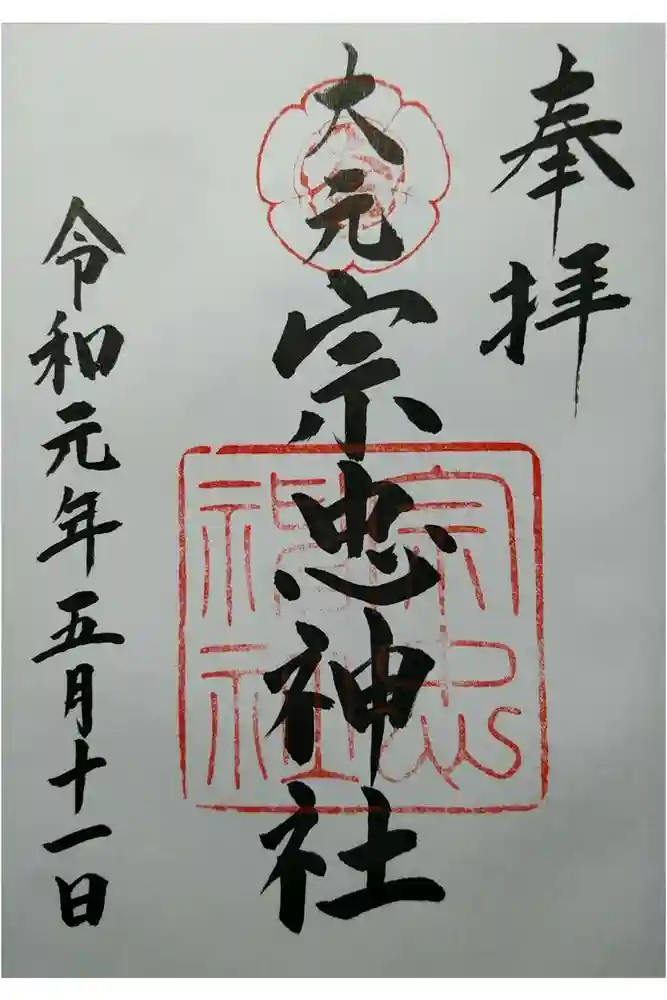 奉拝
大元宗忠神社
宗忠
神社
令和元年五月十一日